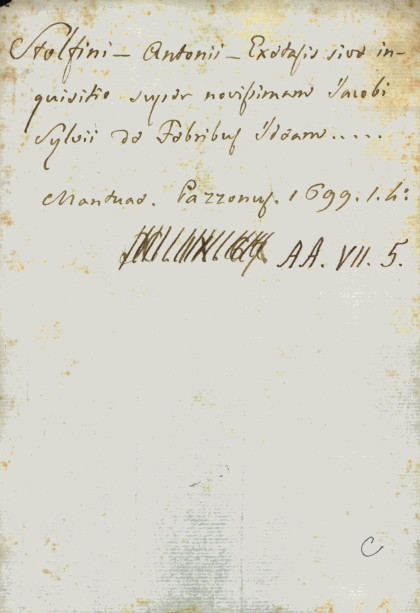 Stolfini - Antonii - Exetasis sive in-
quisitio super novissimam Jacobi
Sylvii de Febribus Ideam.....
Mantuae. Pazzonus. 1699. 1. 4:
AA. VII. 5.
C